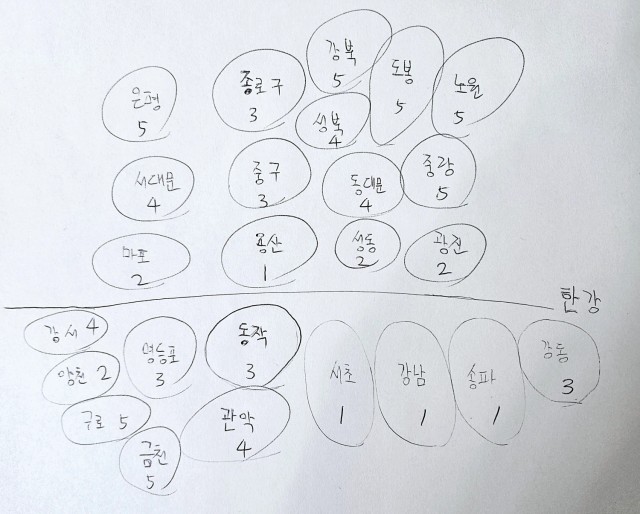 강북
5
도봉
5
노원
5
은평
5
종로구
3
성북
4
서대문
4
중구
3
동대문
4
중랑
5
마포
2
용산
1
성동
2
광진
2
한강
강서 4
영등포
3
동작
3
서초
1
강남
1
송파
1
강동
3
양천 2
구로 5
관악
4
금천
5